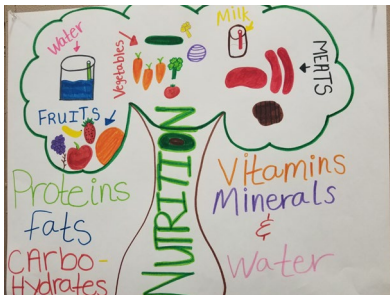 Water
Vegetables
Milk
MEATS
FRUITS
NUTRITION
Proteins
fats
CArbo-
HydRates
Vitamins
Minerals
&
Water